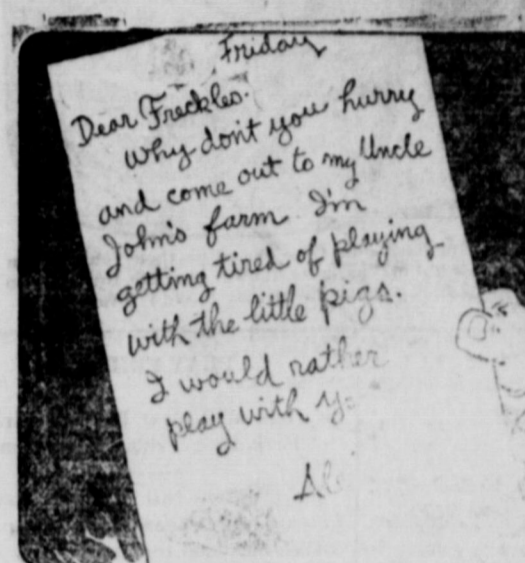 Friday
Dear Freckles.
Why don't you hurry
and come out to my Uncle
John's farm. I'm
getting tired of playing
with the little pigs.
I would rather
play with